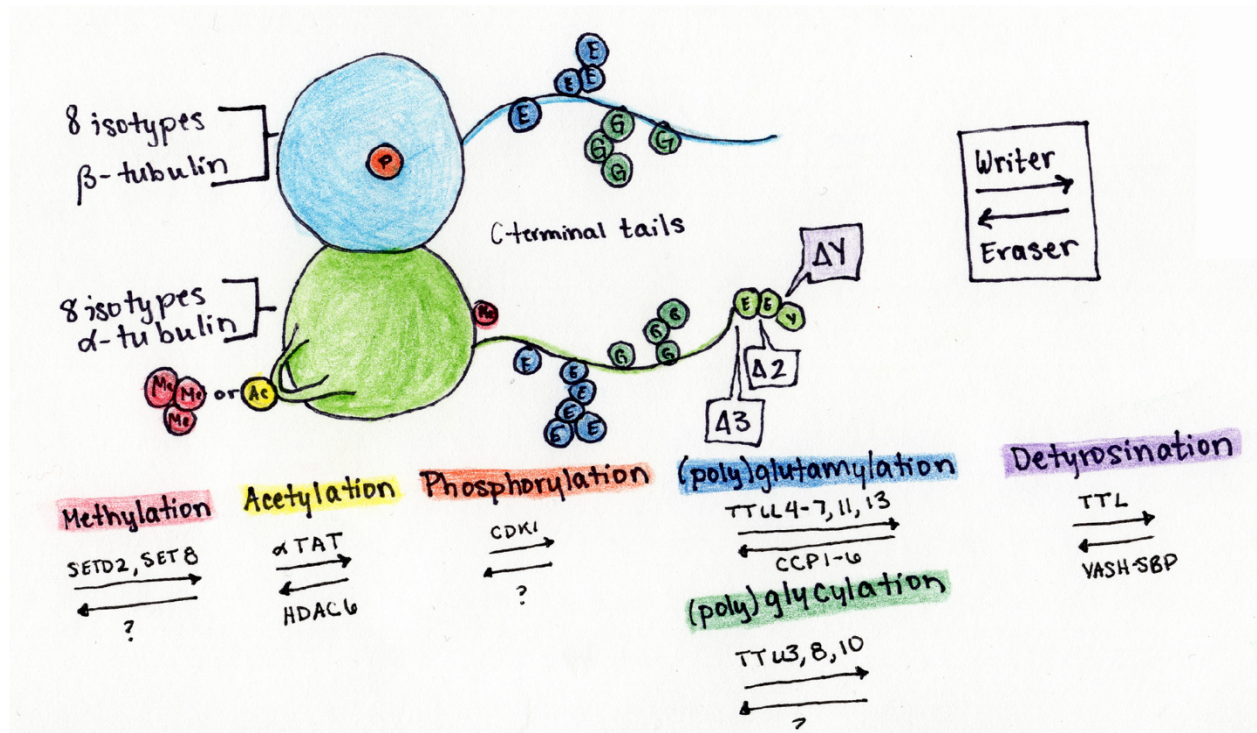 8 isotypes
β-tubulin
P
E
E E
E
G
G
G
G
C-terminal tails
Writer
Eraser
8 isotypes
α-tubulin
Me
Me
Me
or
Ac
Me
E
E
E
E
E
E
G
G
G
G
E E Y
ΔY
Δ2
Δ3
Methylation
SETD2, SET8
?
Acetylation
αTAT
HDAC6
Phosphorylation
CDK1
?
(poly)glutamylation
TTLL4-7, 11, 13
CCP1-6
(poly)glycylation
TTLL3, 8, 10
?
Detyrosination
TTL
VASH-SBP